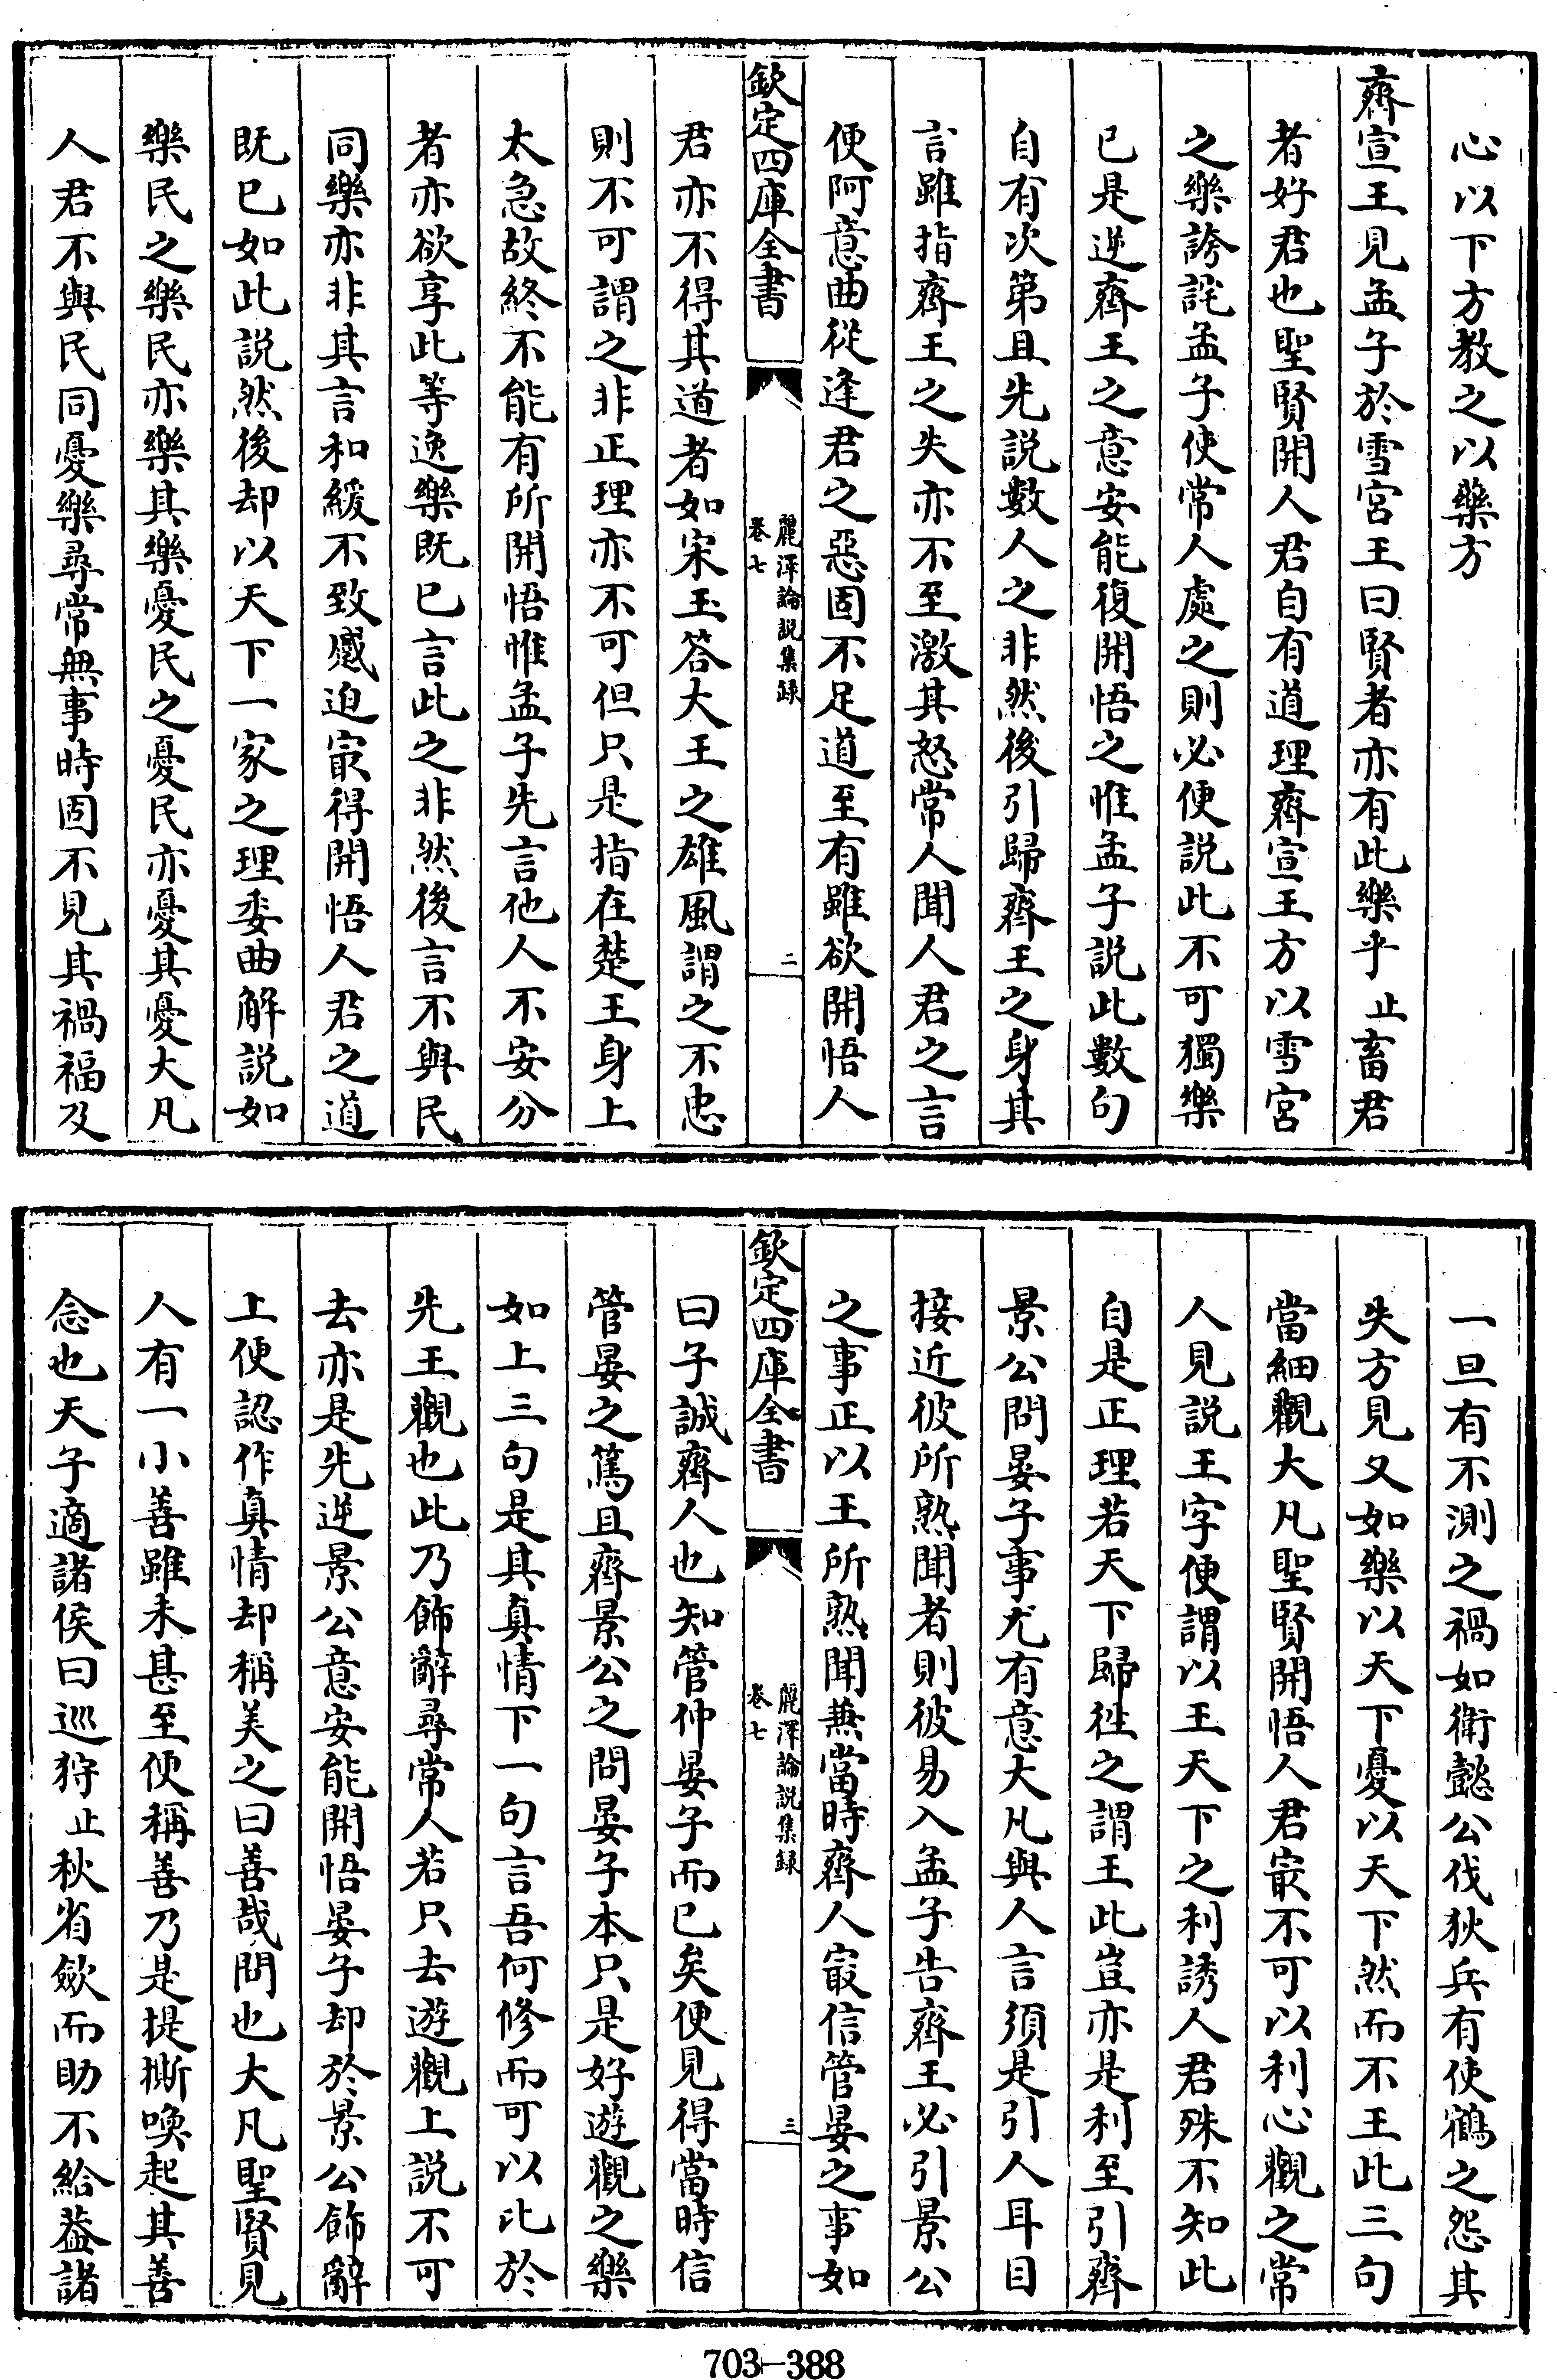 心以下方教之以藥方
齊宣王見孟子於雪宮王曰賢者亦有此樂乎止畜君
者好君也聖賢開人君自有道理齊宣王方以雪宮
之樂誇詫孟子使常人處之則必便説此不可獨樂
已是逆齊王之意安能復開悟之惟孟子説此數句
自有次第且先説數人之非然後引歸齊王之身其
言雖指齊王之失亦不至激其怒常人聞人君之言
便阿意曲從逢君之惡固不足道至有雖欲開悟人
欽定四庫全書
麗澤論説集録
卷七
二
君亦不得其道者如宋玉答大王之雄風謂之不忠
則不可謂之非正理亦不可但只是指在楚王身上
太急故終不能有所開悟惟孟子先言他人不安分
者亦欲享此等逸樂既已言此之非然後言不與民
同樂亦非其言和緩不致蹙迫㝡得開悟人君之道
既已如此説然後却以天下一家之理委曲解説如
樂民之樂民亦樂其樂憂民之憂民亦憂其憂大凡
人君不與民同憂樂尋常無事時固不見其禍福及
一旦有不測之禍如衛懿公伐狄兵有使鶴之怨其
失方見又如樂以天下憂以天下然而不王此三句
當細觀大凡聖賢開悟人君㝡不可以利心觀之常
人見説王字便謂以王天下之利誘人君殊不知此
自是正理若天下歸徃之謂王此豈亦是利至引齊
景公問晏子事尤有意大凡與人言須是引人耳目
接近彼所熟聞者則彼易入孟子告齊王必引景公
之事正以王所熟聞兼當時齊人㝡信管晏之事如
欽定四庫全書
麗澤論説集録
卷七
三
曰子誠齊人也知管仲晏子而已矣便見得當時信
管晏之篤且齊景公之問晏子本只是好遊觀之樂
如上三句是其真情下一句言吾何修而可以比於
先王觀也此乃飾辭尋常人若只去遊觀上説不可
去亦是先逆景公意安能開悟晏子却於景公飾辭
上便認作真情却稱美之曰善哉問也大凡聖賢見
人有一小善雖未甚至便稱善乃是提撕喚起其善
念也天子適諸侯曰巡狩止秋省歛而助不給葢諸
703-388